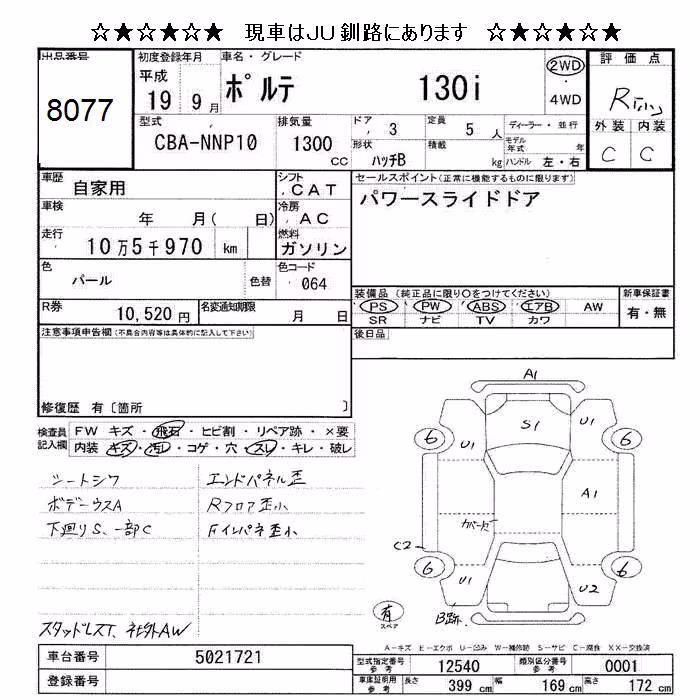 ☆★☆★☆★ 現車はJU釧路にあります ☆★☆★☆★
出品番号
8077
初度登録年月
平成
19 9 月
車名・グレード
ポルテ 130i
2WD
・
4WD
評価点
R
外装 内装
C C
型式
CBA-NNP10
排気量
1300
cc
ドア
3
形状
ハッチB
定員
5 人
積載
kg
ディーラー・並行
モデル年式 年
ハンドル 左・右
車歴
自家用
シフト
CAT
車検
年 月( 日)
冷房
AC
走行
10万5千970 km
燃料
ガソリン
色
パール
色替
色コード
064
R券
10,520円
名変通知期限
月 日
セールスポイント(正常に機能するものに限ります)
パワースライドドア
装備品(純正品に限り○をつけてください)
PS PW ABS エアB AW
SR ナビ TV カワ
新車保証書
有・無
後日品
注意事項申告欄(不具合内容等は具体的に記入して下さい)
修復歴 有〔箇所 〕
検査員記入欄
FW キズ・飛石・ヒビ割・リペア跡・×要
内装 キズ・汚レ・コゲ・穴・スレ・キレ・破レ
シートシワ
ボデーウスA
下廻りS、一部C
エンドパネル歪
Rフロア歪小
Fインパネ歪小
スタッドレスT、社外AW
A1
U1
S1
U1
6
6
A1
カバーセ
C2
6
6
U1
U2
B跡
有
スペア
A-キズ E-エクボ U-凹み W-補修跡 S-サビ C-腐食 XX-交換済
車台番号 5021721
登録番号
型式指定番号
参考
12540
類別区分番号
参考
0001
車庫証明用
参考
長さ 399 cm 幅 169 cm 高さ 172 cm